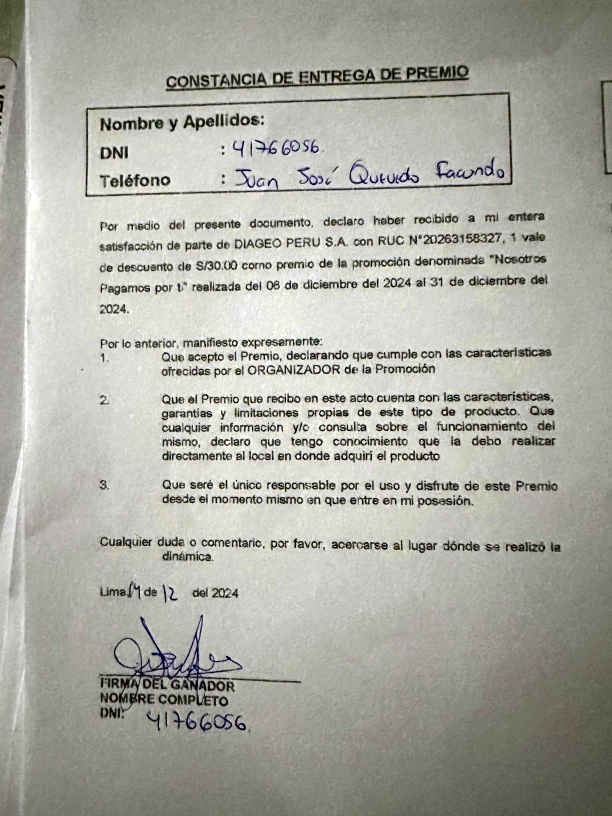 CONSTANCIA DE ENTREGA DE PREMIO
Nombre y Apellidos:
DNI : 41766056.
Teléfono : Juan José Quevedo Facundo
Por medio del presente documento, declaro haber recibido a mi entera
satisfacción de parte de DIAGEO PERU S.A. con RUC N°20263158327, 1 vale
de descuento de S/30.00 como premio de la promoción denominada "Nosotros
Pagamos por ti" realizada del 06 de diciembre del 2024 al 31 de diciembre del
2024.
Por lo anterior, manifiesto expresamente:
1. Que acepto el Premio, declarando que cumple con las características
ofrecidas por el ORGANIZADOR de la Promoción
2. Que el Premio que recibo en este acto cuenta con las características,
garantías y limitaciones propias de este tipo de producto. Que
cualquier información y/o consulta sobre el funcionamiento del
mismo, declaro que tengo conocimiento que la debo realizar
directamente al local en donde adquirí el producto
3. Que seré el único responsable por el uso y disfrute de este Premio
desde el momento mismo en que entre en mi posesión.
Cualquier duda o comentario, por favor, acercarse al lugar dónde se realizó la
dinámica.
Lima 14 de 12 del 2024
FIRMA DEL GANADOR
NOMBRE COMPLETO
DNI: 41766056.